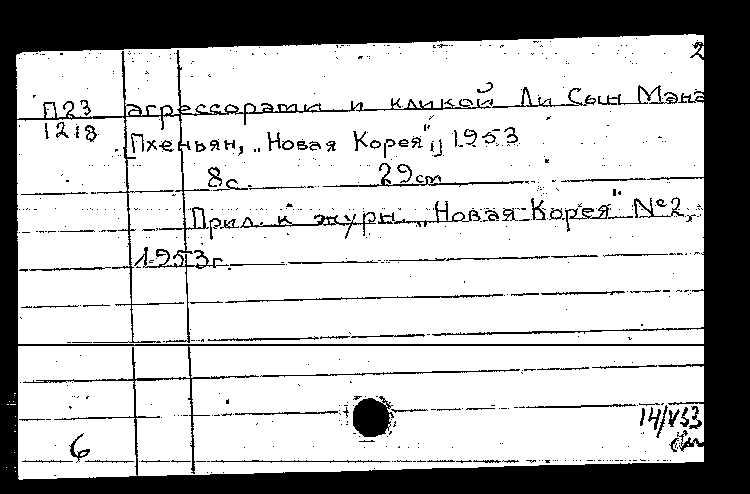 2
П23 агрессорами и кликой Ли Сын Мана
1218 [Пхеньян, „Новая Корея",] 1953
8с. 29cm
Прил. к журн. „Новая Корея" №2,
1953г.
14/V53
6